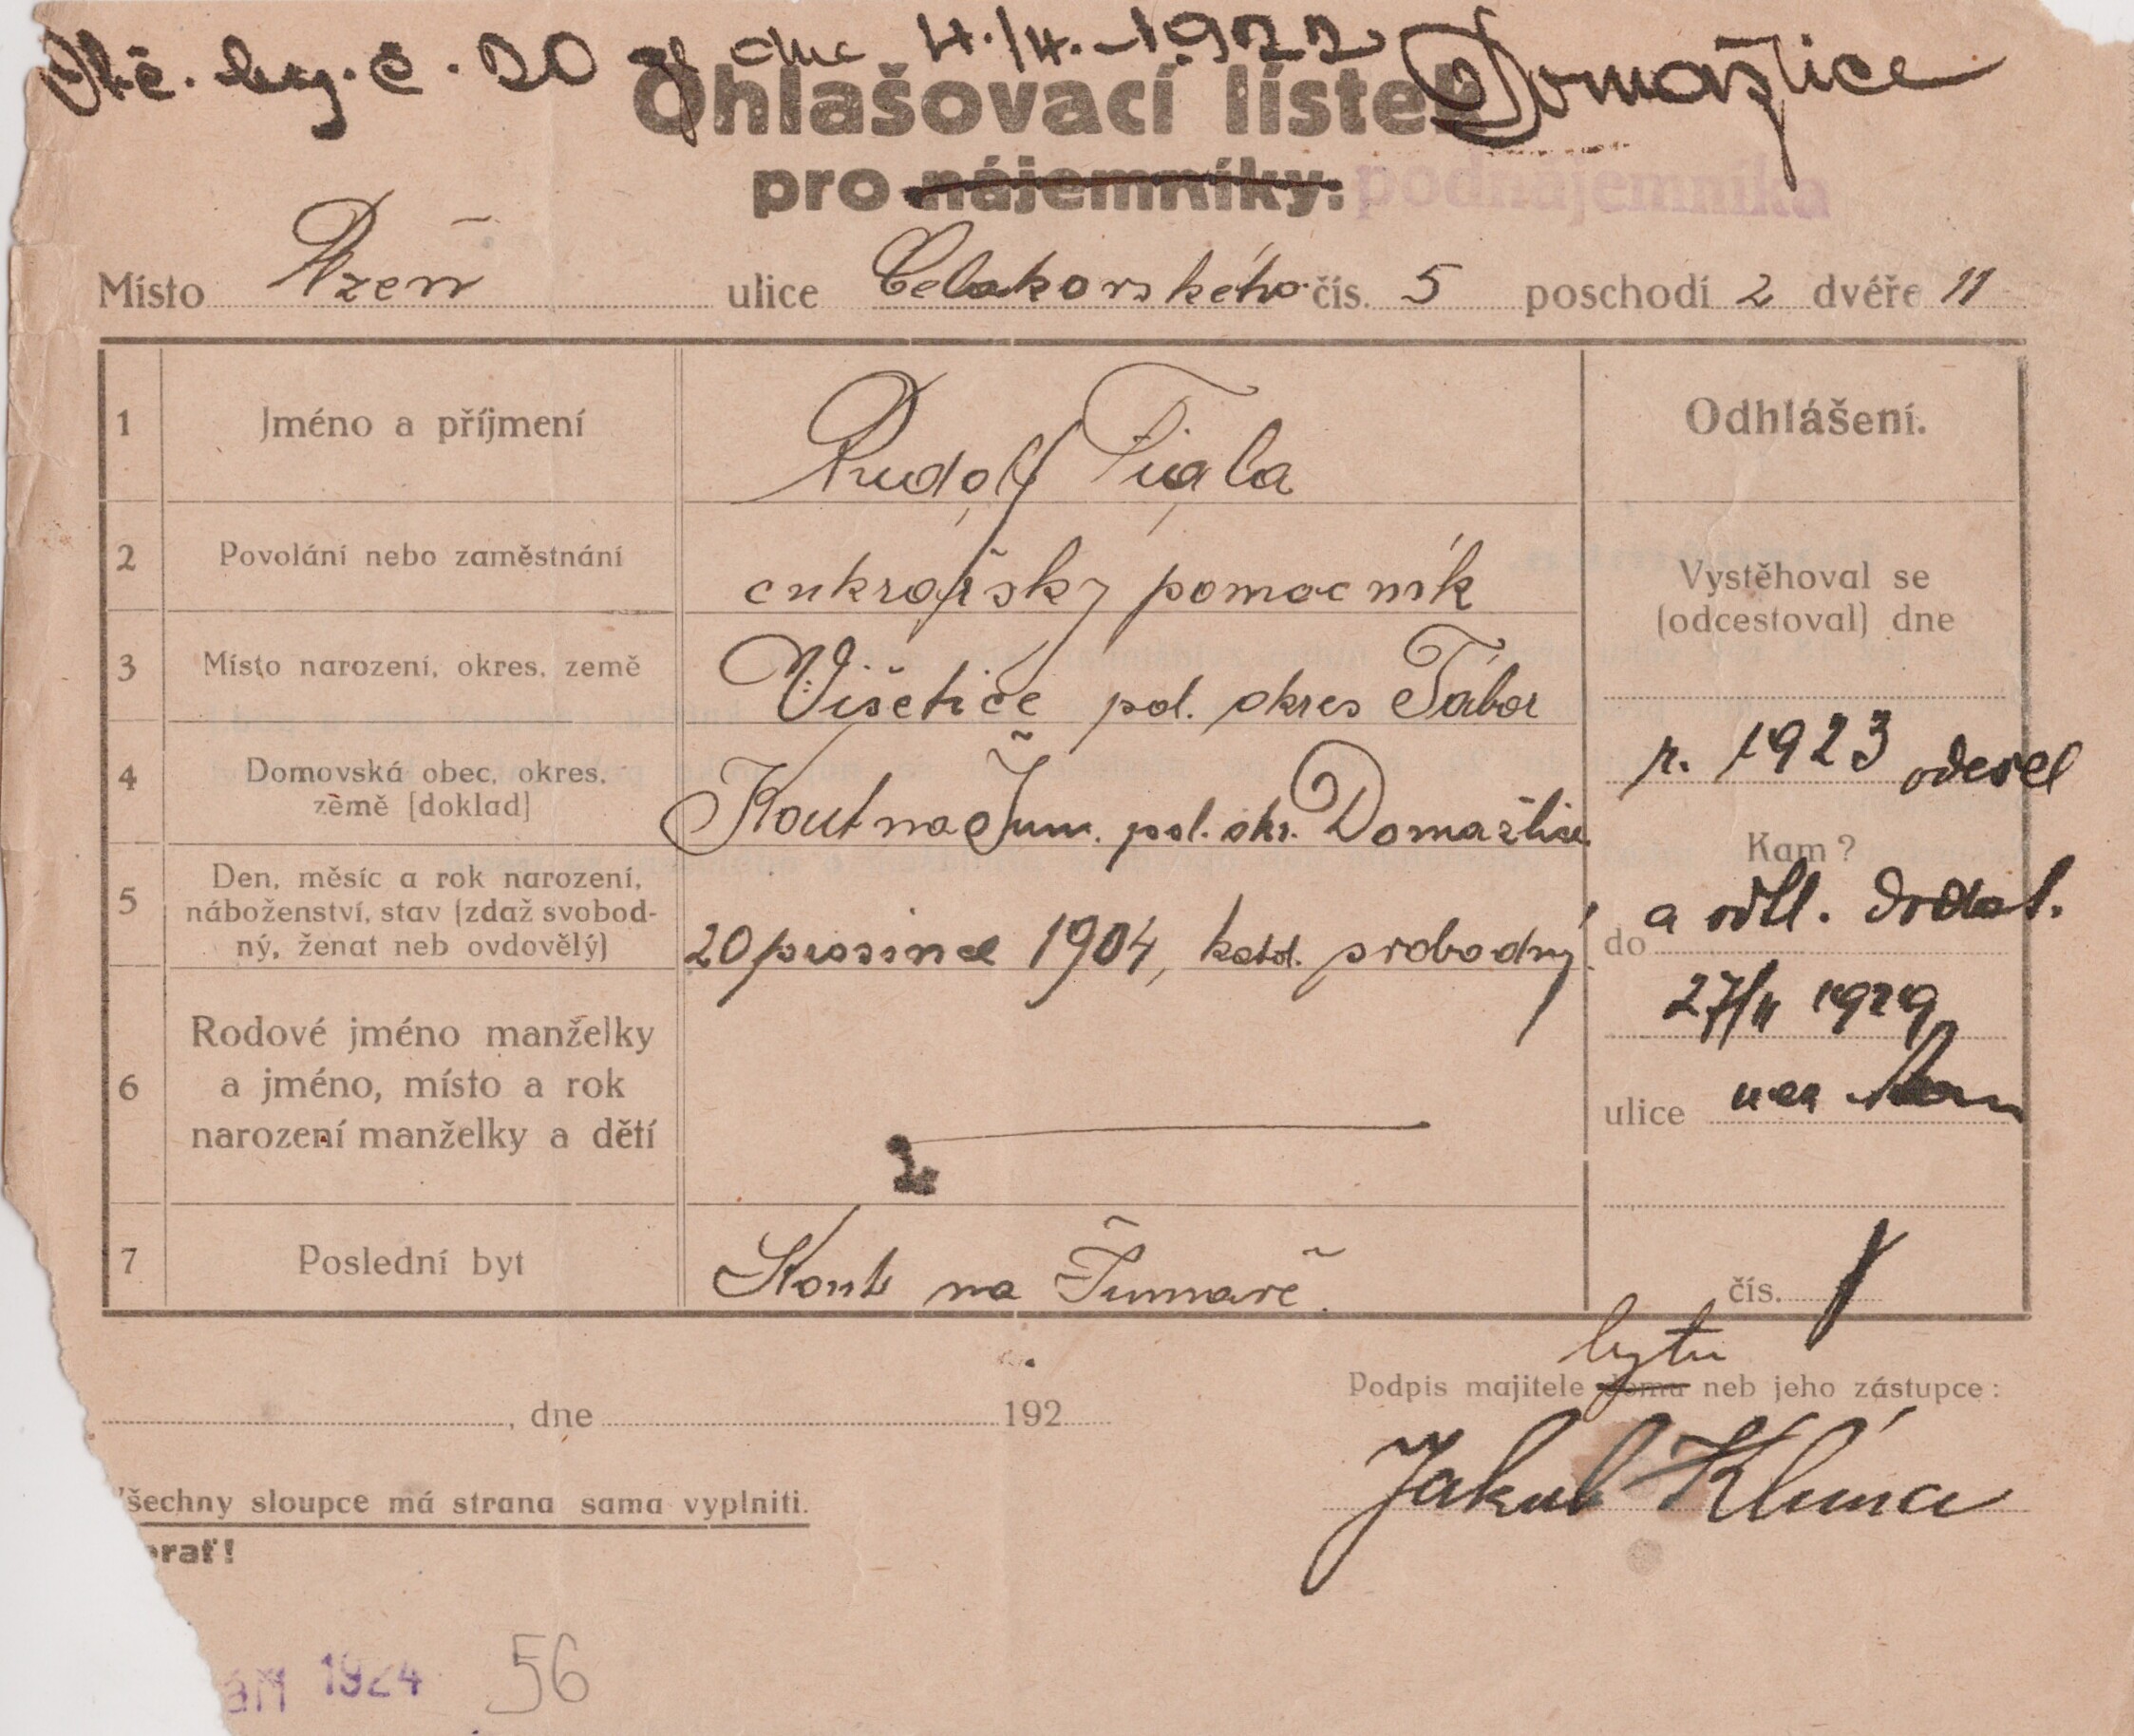 Obč. leg. č. 20 ze dne 4./4.-1922 Domažlice
Ohlašovací lístek
pro nájemníky: podnájemníka
Místo Plzeň ulice Čelakovského čís. 5 poschodí 2 dvéře 11
1 Jméno a příjmení Rudolf Figla Odhlášení.
2 Povolání nebo zaměstnání cukrářský pomocník
Vystěhoval se
(odcestoval) dne
3 Místo narození, okres, země Višetice pol. okres Tábor
r. 1923 odešel
4 Domovská obec, okres,
země [doklad] Kout na Šum. pol. okr. Domažlice
Kam?
5 Den, měsíc a rok narození,
náboženství, stav (zdaž svobod-
ný, ženat neb ovdovělý) 20 prosince 1904, katol. svobodný
do a odhl. dodat.
27/11 1929
6 Rodové jméno manželky
a jméno, místo a rok
narození manželky a dětí
ulice
7 Poslední byt Kout na Šumavě.
čís.
bytu
Podpis majitele domu neb jeho zástupce:
, dne 192
Jakub Klíma
šechny sloupce má strana sama vyplniti.
erať!
ÁŘÍ 1924 56